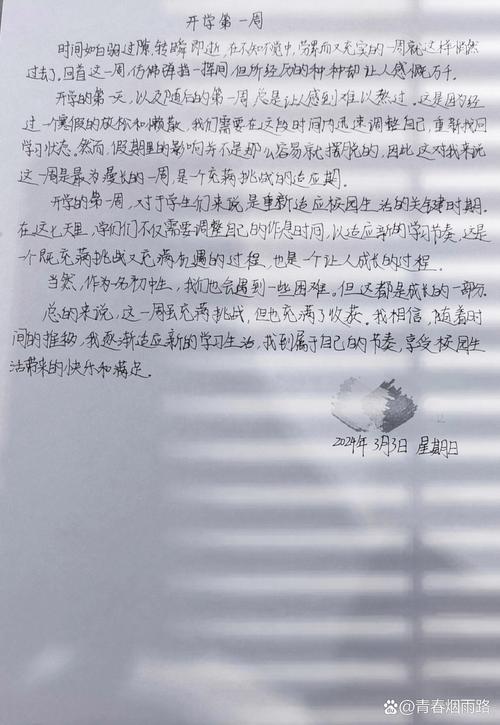 开学第一周
时间如白驹过隙,转瞬即逝,在不知不觉中,劳累而又充实的一周就这样悄然
过去了。回首这一周,仿佛弹指一挥间,但所经历的种种却让人感慨万千。
开学的第一天,以及随后的第一周,总是让人感到难以熬过。这是因为经
过一个寒假的放松和懒散,我们需要在这段时间内迅速调整自己,重新找回
学习状态。然而,假期里的影响并不是那么容易就摆脱的,因此,这对我来说
这一周是最为漫长的一周,是一个充满挑战的适应期。
开学的第一周,对于学生们来说,是重新适应校园生活的关键时期。
在这七天里,学们们不仅需要调整自己的作息时间,以适应新的学习节奏,这是
一个既充满挑战又充满机遇的过程,也是一个让人成长的过程。
当然,作为一名初中生,我们也会遇到一些困难。但这都是成长的一部分
总的来说,这一周虽充满挑战,但也充满了收获。我相信,随着时
间的推移,我逐渐适应新的学习生活,找到属于自己的节奏,享受校园生
活带来的快乐和满足。
2024年3月3日 星期日
@青春烟雨路